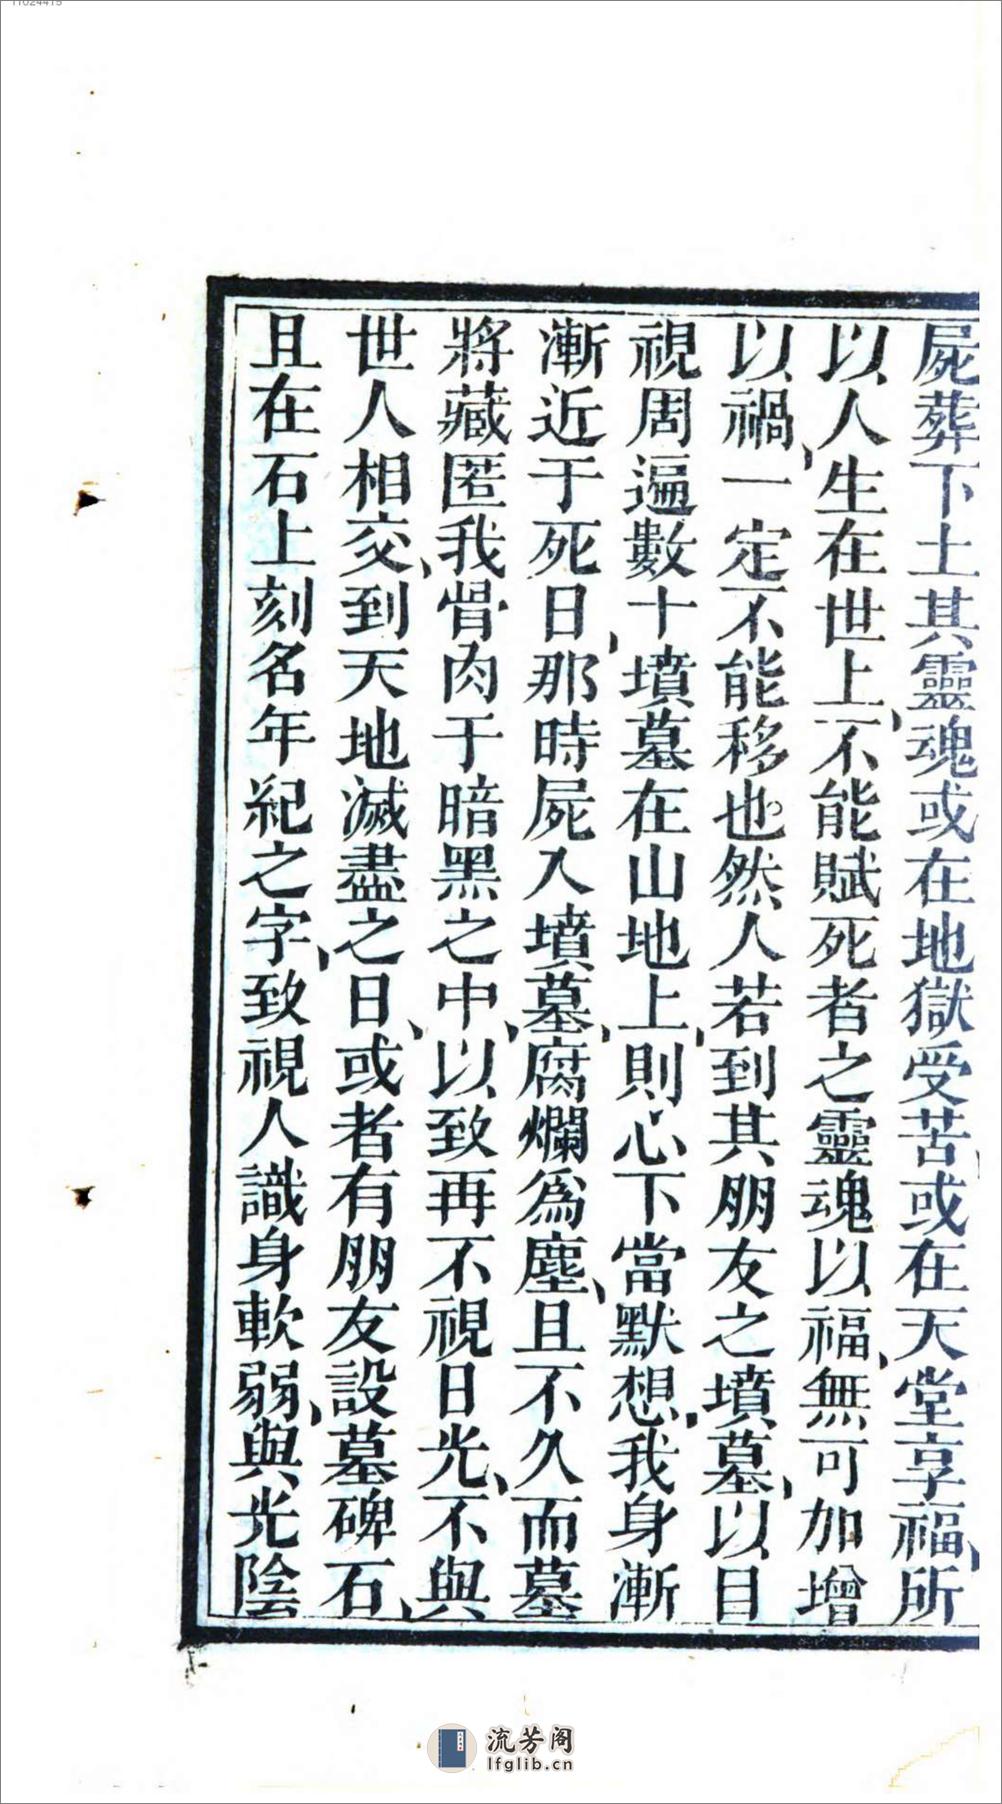 屍葬下土其靈魂或在地獄受苦、或在天堂享福、所
以人生在世上、不能賦死者之靈魂以福、無可加增
以禍、一定不能移也。然人若到其朋友之墳墓、以目
視周遍數十墳墓在山地上、則心下當默想、我身漸
漸近于死日、那時屍入墳墓、腐爛爲塵、且不久而墓
將藏匿我骨肉于暗黑之中、以致再不視日光、不與
世人相交、到天地滅盡之日、或者有朋友設墓碑石、
且在石上刻名年紀之字、致視人識身軟弱、與光陰
流芳阁
lfglib.cn